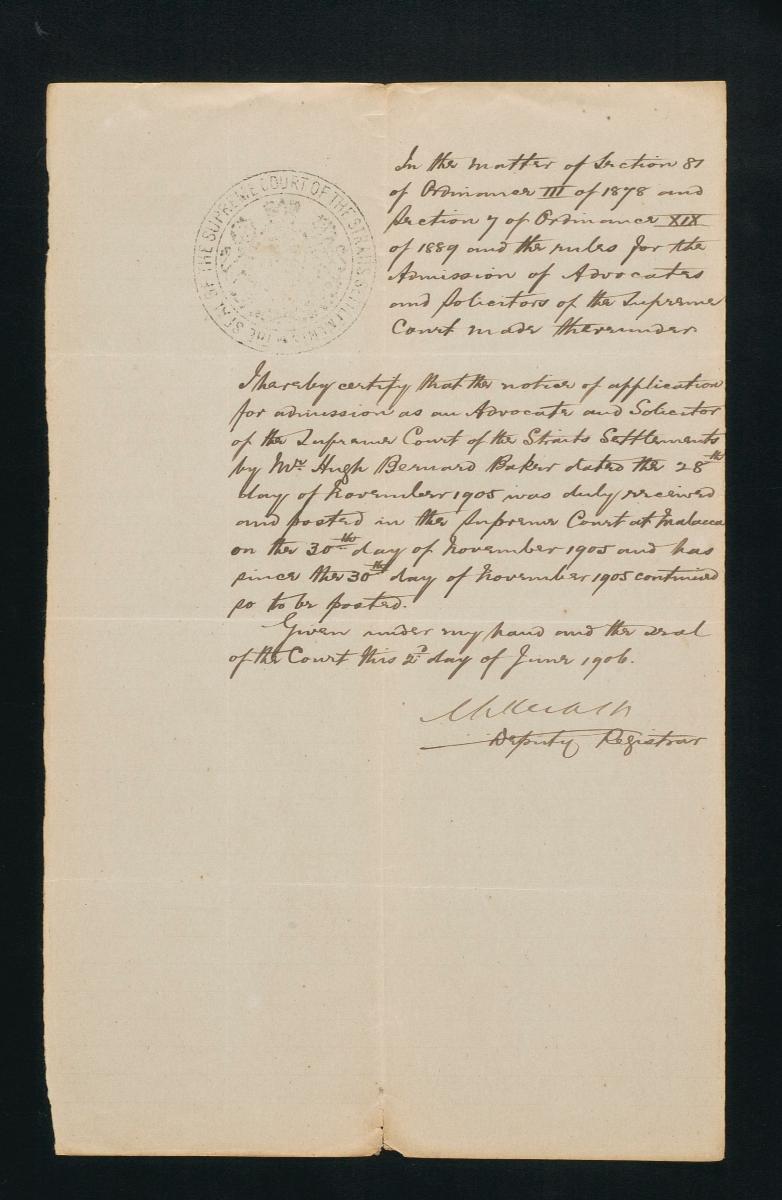 THE SEAL OF THE SUPREME COURT OF THE STRAITS SETTLEMENTS
In the matter of Section 81
of Ordinance III of 1878 and
Section 7 of Ordinance XIX
of 1889 and the rules for the
Admission of Advocates
and Solicitors of the Supreme
Court made thereunder
I hereby certify that the notice of application
for admission as an Advocate and Solicitor
of the Supreme Court of the Straits Settlements
by Mr. Hugh Bernard Baker dated the 28th
day of November 1905 was duly received
and posted in the Supreme Court at Malacca
on the 30th day of November 1905 and has
since the 30th day of November 1905 continued
so to be posted.
Given under my hand and the seal
of the Court this 2d day of June 1906.
Deputy Registrar